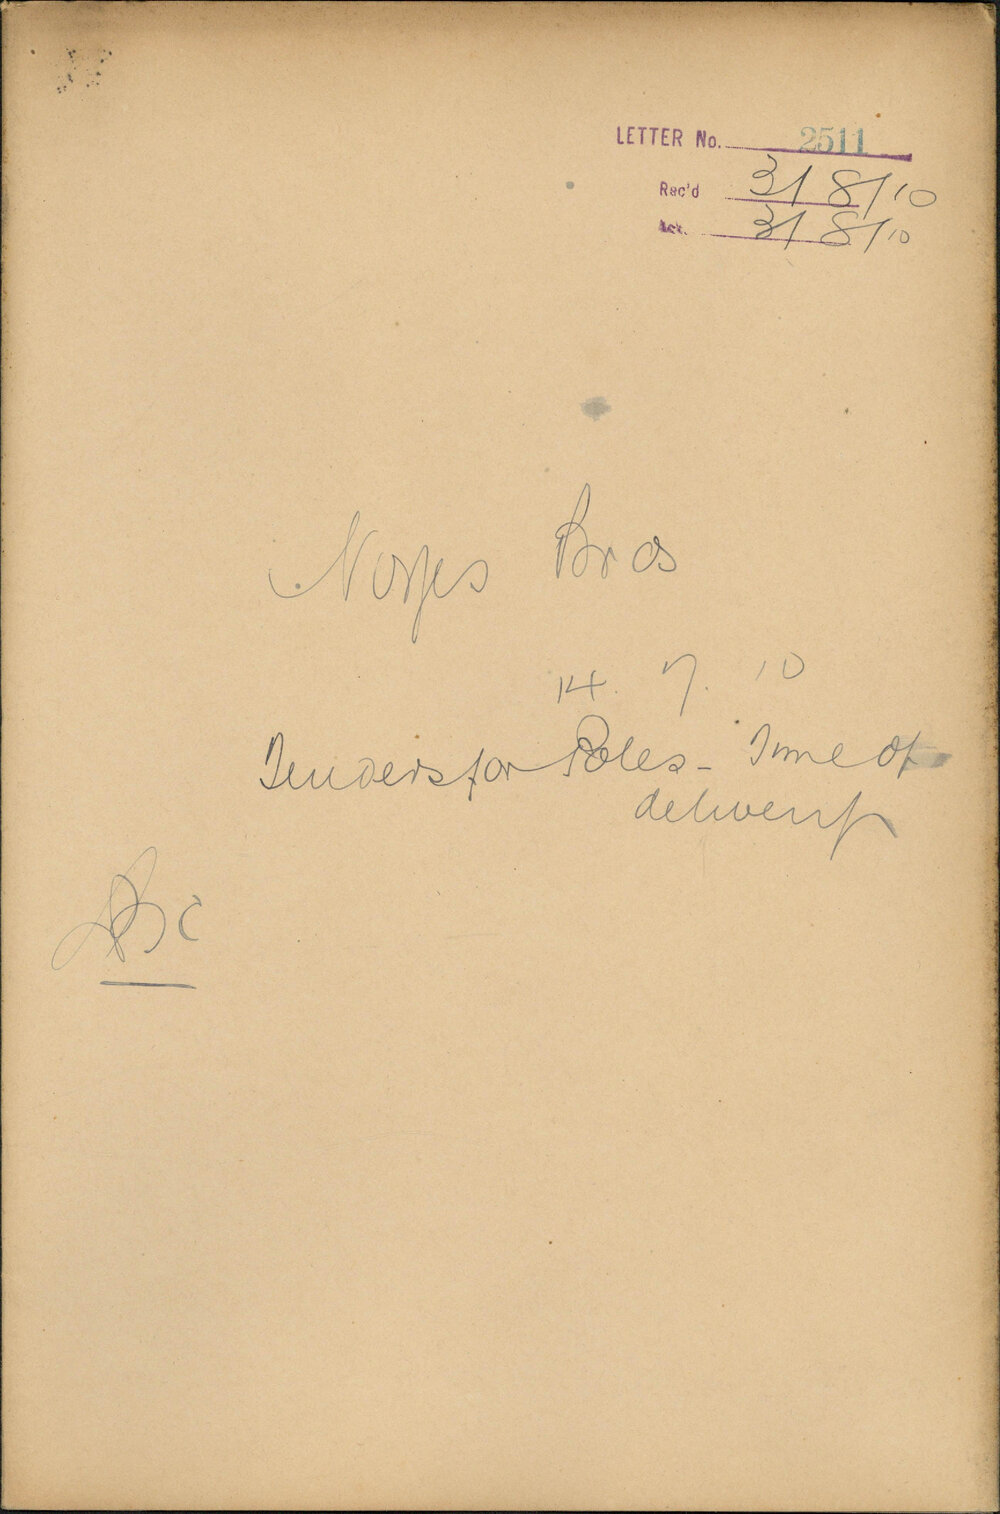 LETTER No. 2511
Rec'd 3/8/10
Ack. 3/8/10
Noyes Bros
14. 7. 10
Tenders for Poles - Time of
delivery